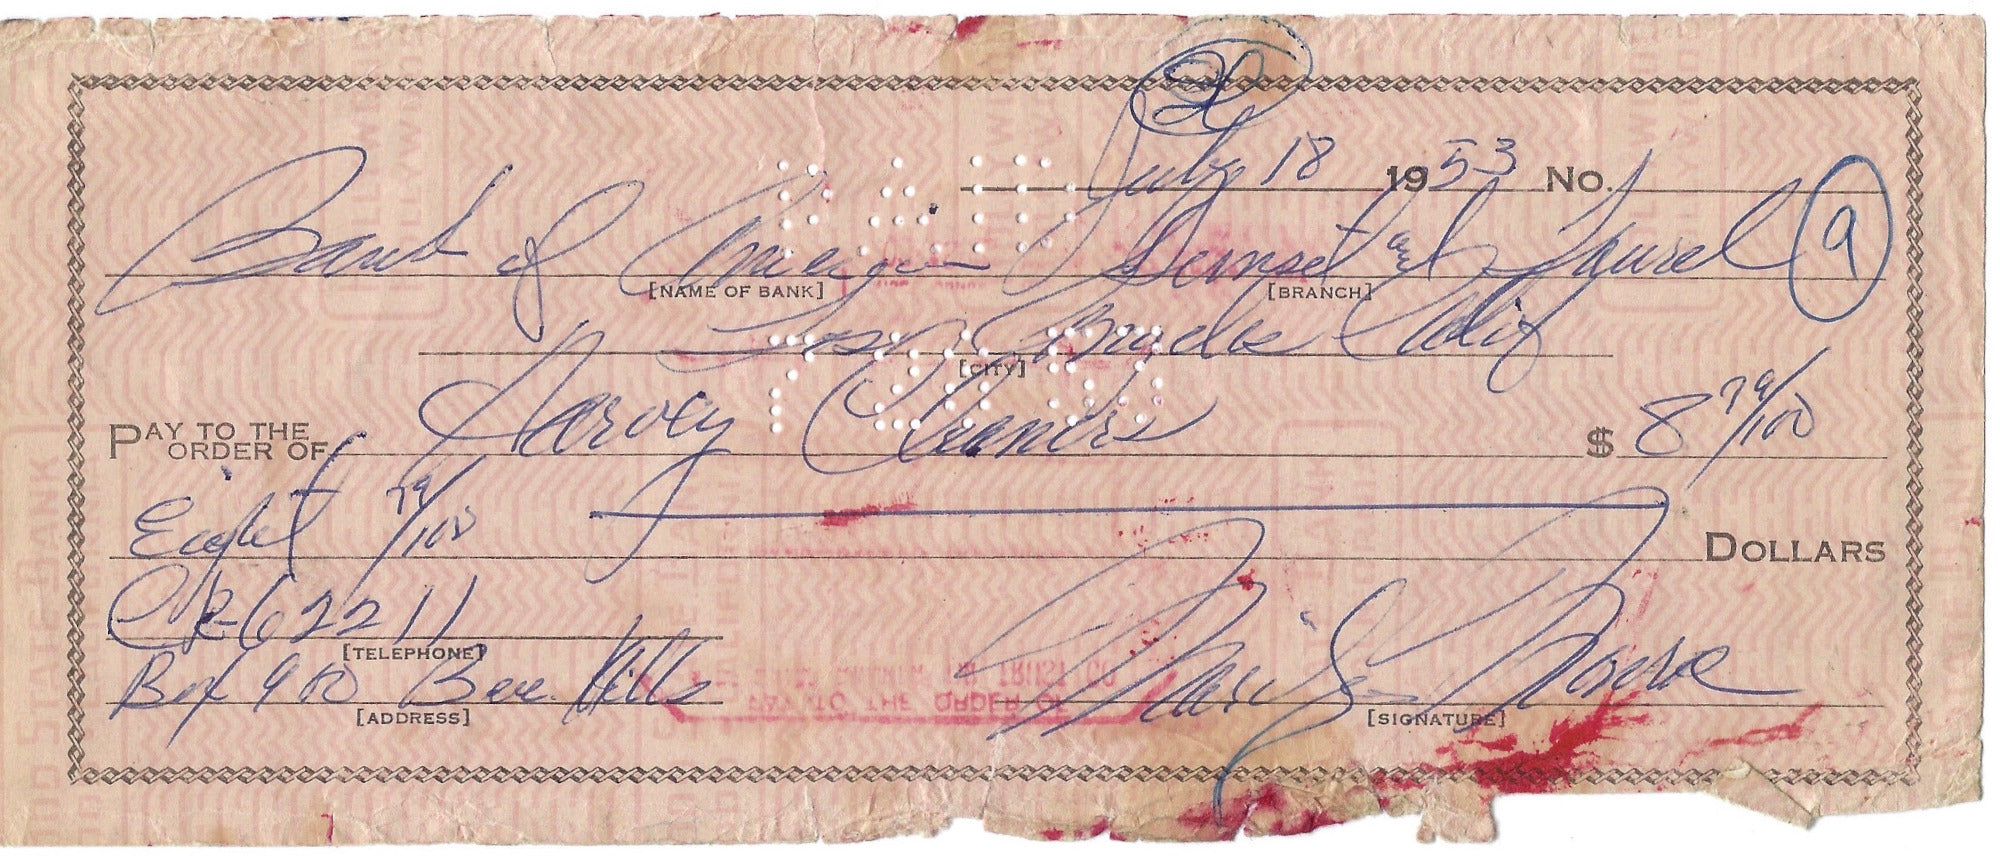 20
July 18 1953 No.
Bank of America Sunset and Laurel 9
[NAME OF BANK] [BRANCH]
Los Angeles Calif
[CITY]
PAY TO THE ORDER OF Harvey Cleaners $ 8 79/100
Eight 79/100 DOLLARS
CR-62211
[TELEPHONE]
Box 910 Bev. Hills
[ADDRESS]
Marilyn Monroe
[SIGNATURE]
PAID
PAY TO THE ORDER OF
TRUST CO